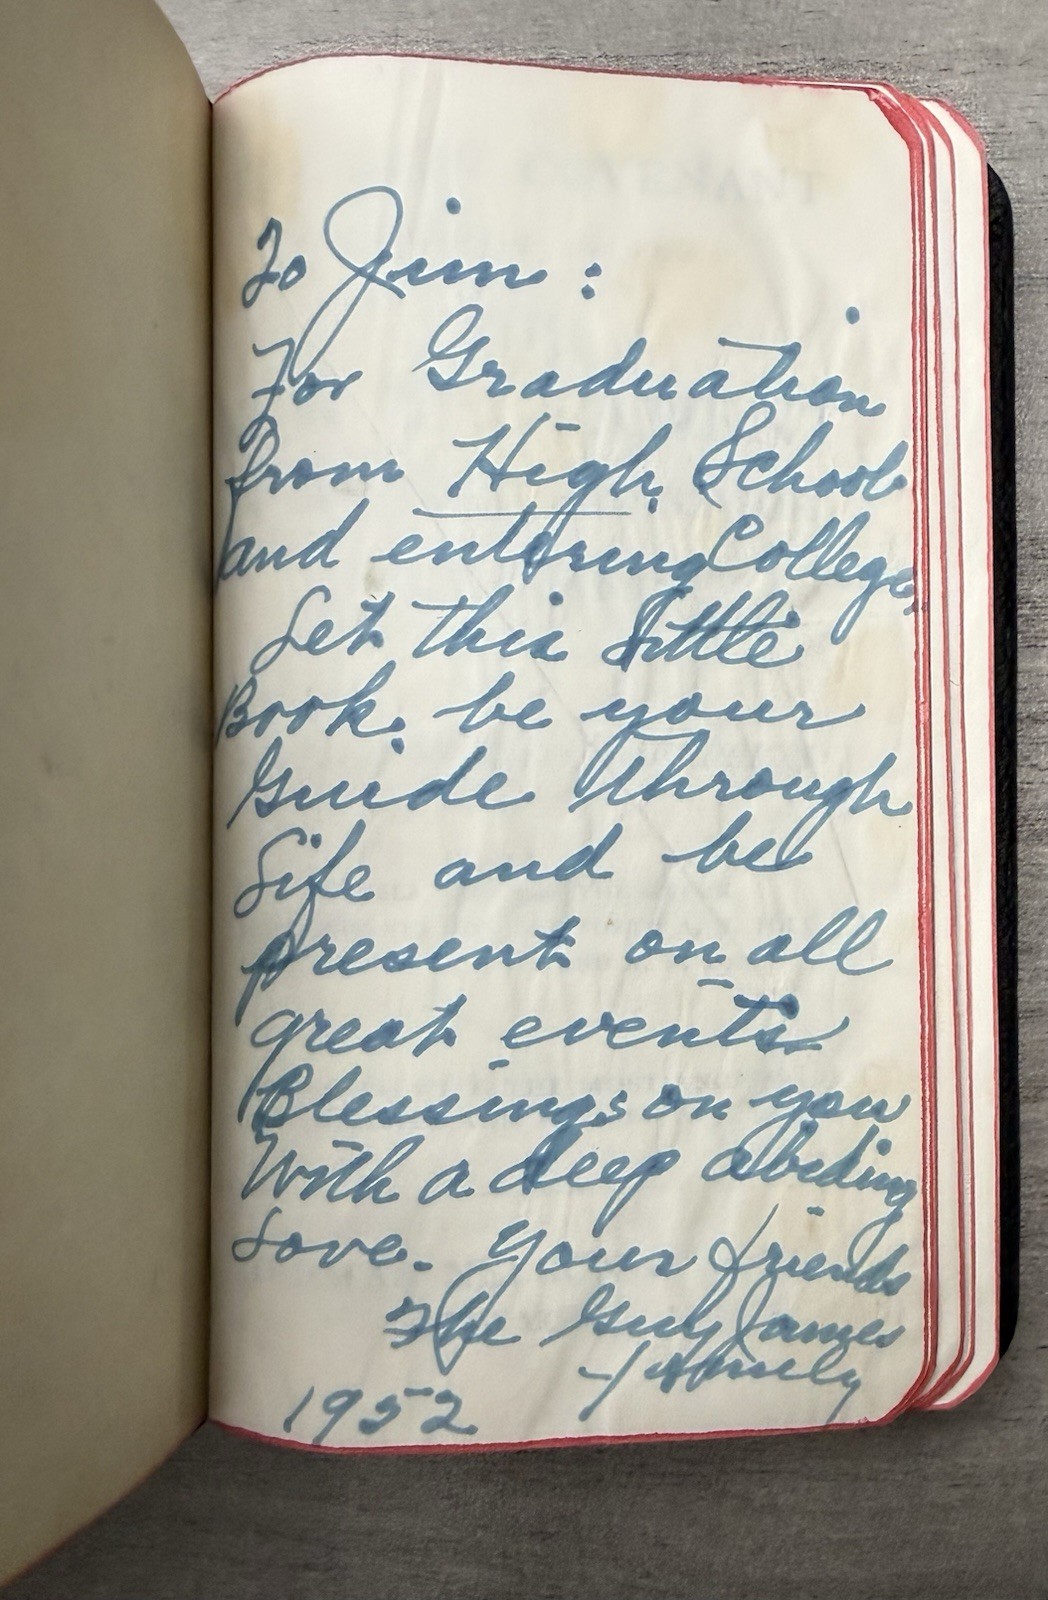 To Jim :
For Graduation
from High School
and entering College.
Let this little
Book be your
Guide through
Life and be
present on all
great events
Blessings on you
With a deep abiding
Love. Your friends
The Guy James
Family
1952